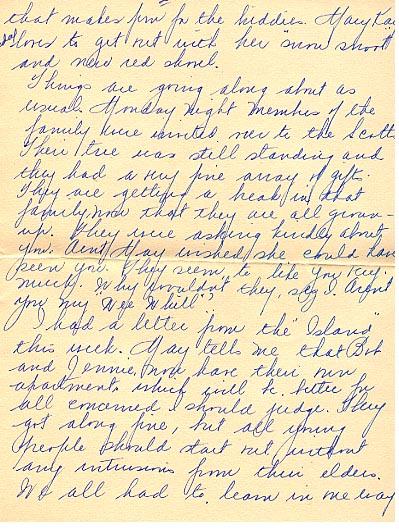 that makes fun for the kiddies. Mary Kay
loves to get out with her "snow snoot"
and new red shovel.
Things are going along about as
usual. Monday night members of the
family were invited over to the Scotts
Their tree was still standing and
they had a very fine array of gifts.
They are getting a break in that
family now that they are all grown-
up. They were asking kindly about
you. Aunt May wished she could have
seen you. They seem to like you very
much. Why wouldn't they, say I. Aren't
you my Wee Will?
I had a letter from the "Island"
this week. May tells me that Bob
and Jennie now have their own
apartment which will be better for
all concerned I should judge. They
got along fine, but all young
people should start out without
any intrusions from their elders.
We all had to learn in one way